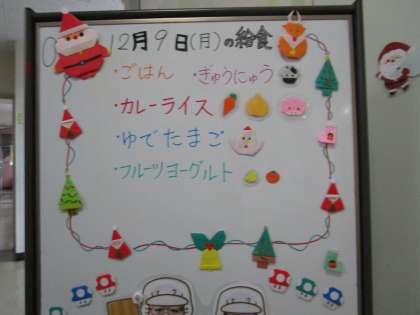 12月9日(月)の給食
・ごはん ・ぎゅうにゅう
・カレーライス
・ゆでたまご
・フルーツヨーグルト